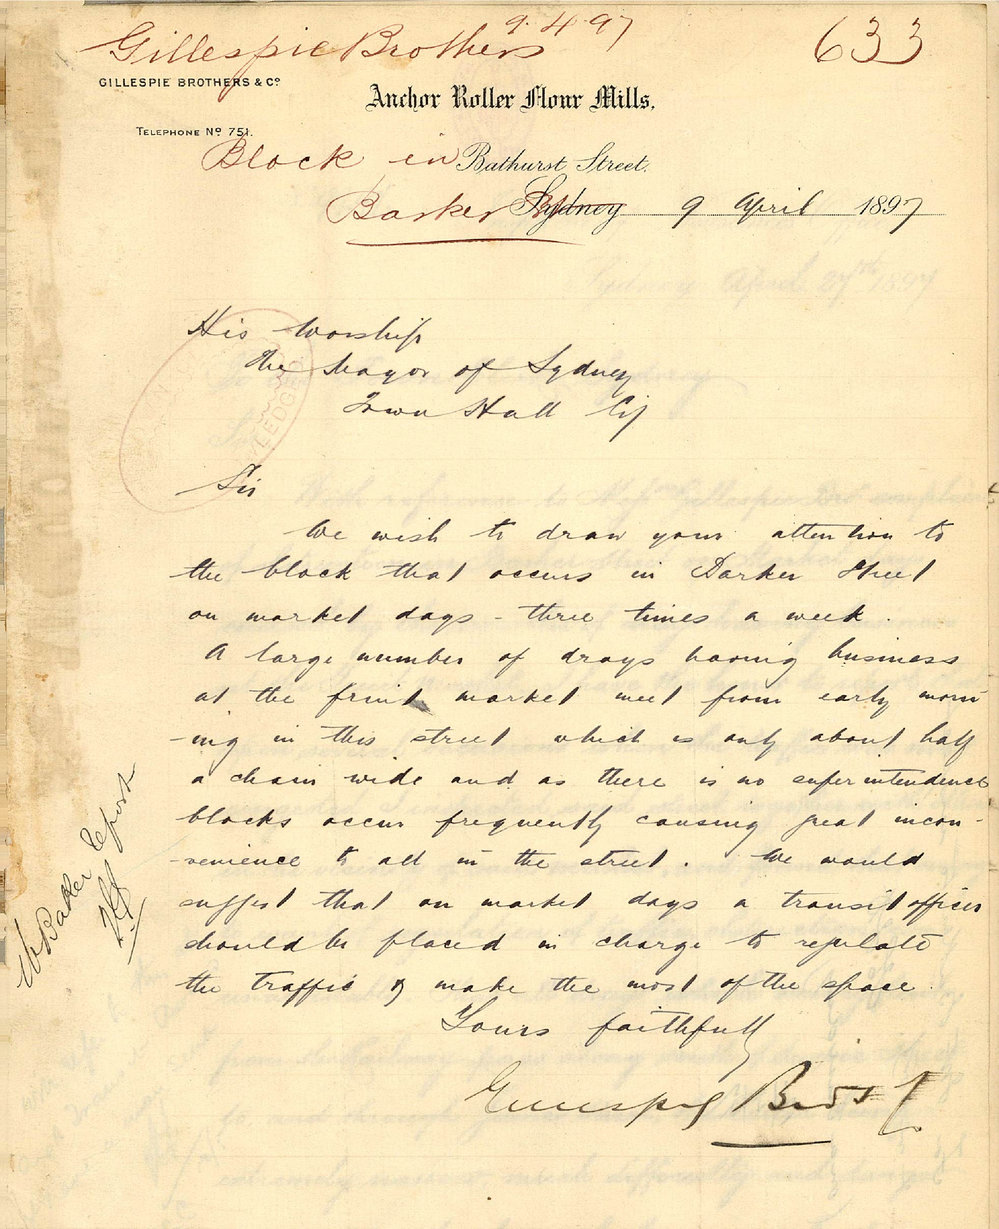 9.4.97
Gillespie Brothers
633
GILLESPIE BROTHERS & Co.
Anchor Roller Flour Mills.
TELEPHONE No 751.
Block in Bathurst Street.
Barker St Sydney 9 April 1897
His Worship
The Mayor of Sydney
Town Hall City
Sir
We wish to draw your attention to
the block that occurs in Barker Street
on market days - three times a week.
A large number of drays having business
at the fruit market meet from early morn
-ing in this street which is only about half
a chain wide and as there is no superintendence
blocks occur frequently causing great incon-
-venience to all in the street. We would
suggest that on market days a transit officer
should be placed in charge to regulate
the traffic & make the most of the space.
Yours faithfully
Gillespie Bros & Co
report